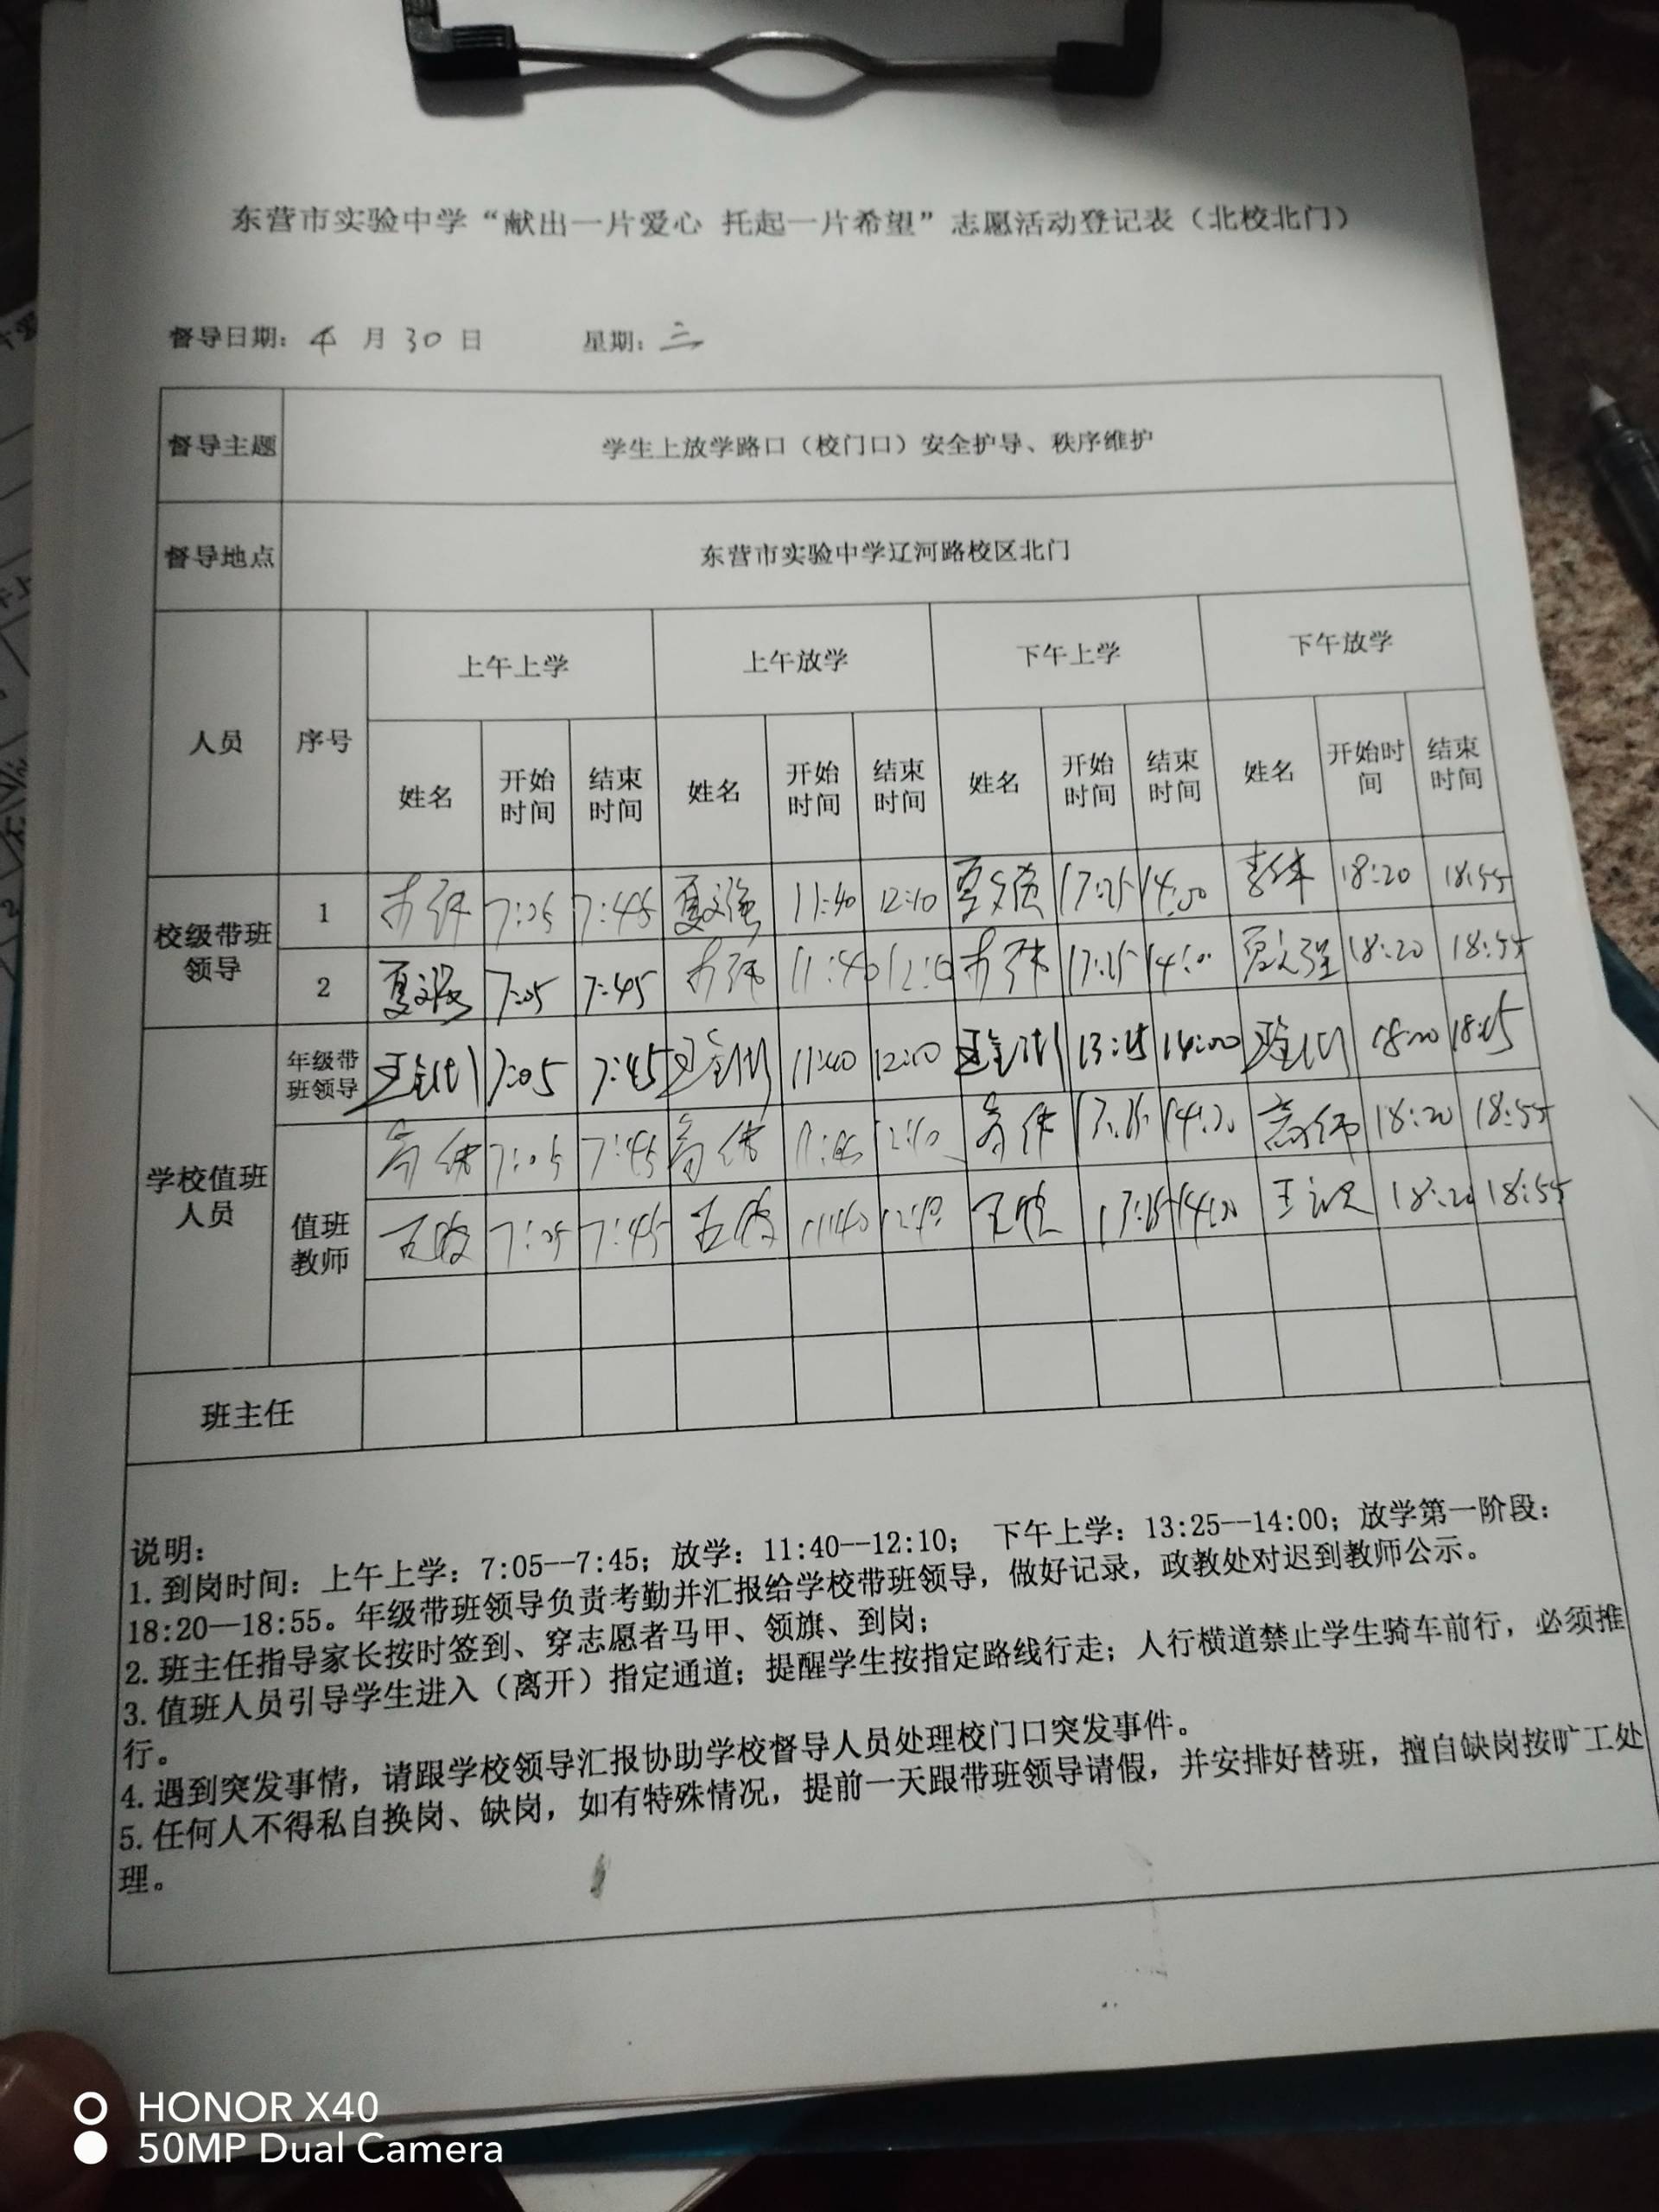 东营市实验中学“献出一片爱心 托起一片希望”志愿活动登记表（北校北门）
督导日期：4 月 30 日 星期：三
督导主题 学生上放学路口（校门口）安全护导、秩序维护
督导地点 东营市实验中学辽河路校区北门
人员 序号 上午上学 上午放学 下午上学 下午放学
姓名 开始时间 结束时间 姓名 开始时间 结束时间 姓名 开始时间 结束时间 姓名 开始时间 结束时间
校级带班领导 1 7:05 7:45 夏文强 11:40 12:10 夏文强 13:25 14:00 18:20 18:55
2 夏文强 7:05 7:45 11:40 12:10 13:25 14:00 夏文强 18:20 18:55
学校值班人员 年级带班领导 7:05 7:45 11:40 12:10 13:25 14:00 18:20
值班教师 7:05 7:45 11:40 12:10 13:25 14:00 18:20 18:55
7:05 7:45 11:40 12:10 13:25 14:00 18:20 18:55
班主任
说明：
1.到岗时间：上午上学：7:05--7:45；放学：11:40--12:10； 下午上学：13:25--14:00；放学第一阶段：
18:20--18:55。年级带班领导负责考勤并汇报给学校带班领导，做好记录，政教处对迟到教师公示。
2.班主任指导家长按时签到、穿志愿者马甲、领旗、到岗；
3.值班人员引导学生进入（离开）指定通道；提醒学生按指定路线行走；人行横道禁止学生骑车前行，必须推
行。
4.遇到突发事情，请跟学校领导汇报协助学校督导人员处理校门口突发事件。
5.任何人不得私自换岗、缺岗，如有特殊情况，提前一天跟带班领导请假，并安排好替班，擅自缺岗按旷工处
理。
HONOR X40
50MP Dual Camera